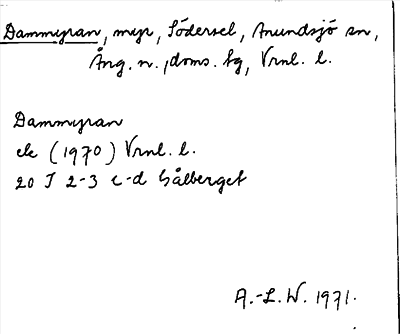 Dammyran, myr, Södersel, Anundsjö sn,
Ång. n., doms. bg, Vrnl. l.
Dammyran
ek (1970) Vrnl. l.
20 J 2-3 c-d Gålberget
A.-L. W. 1971.